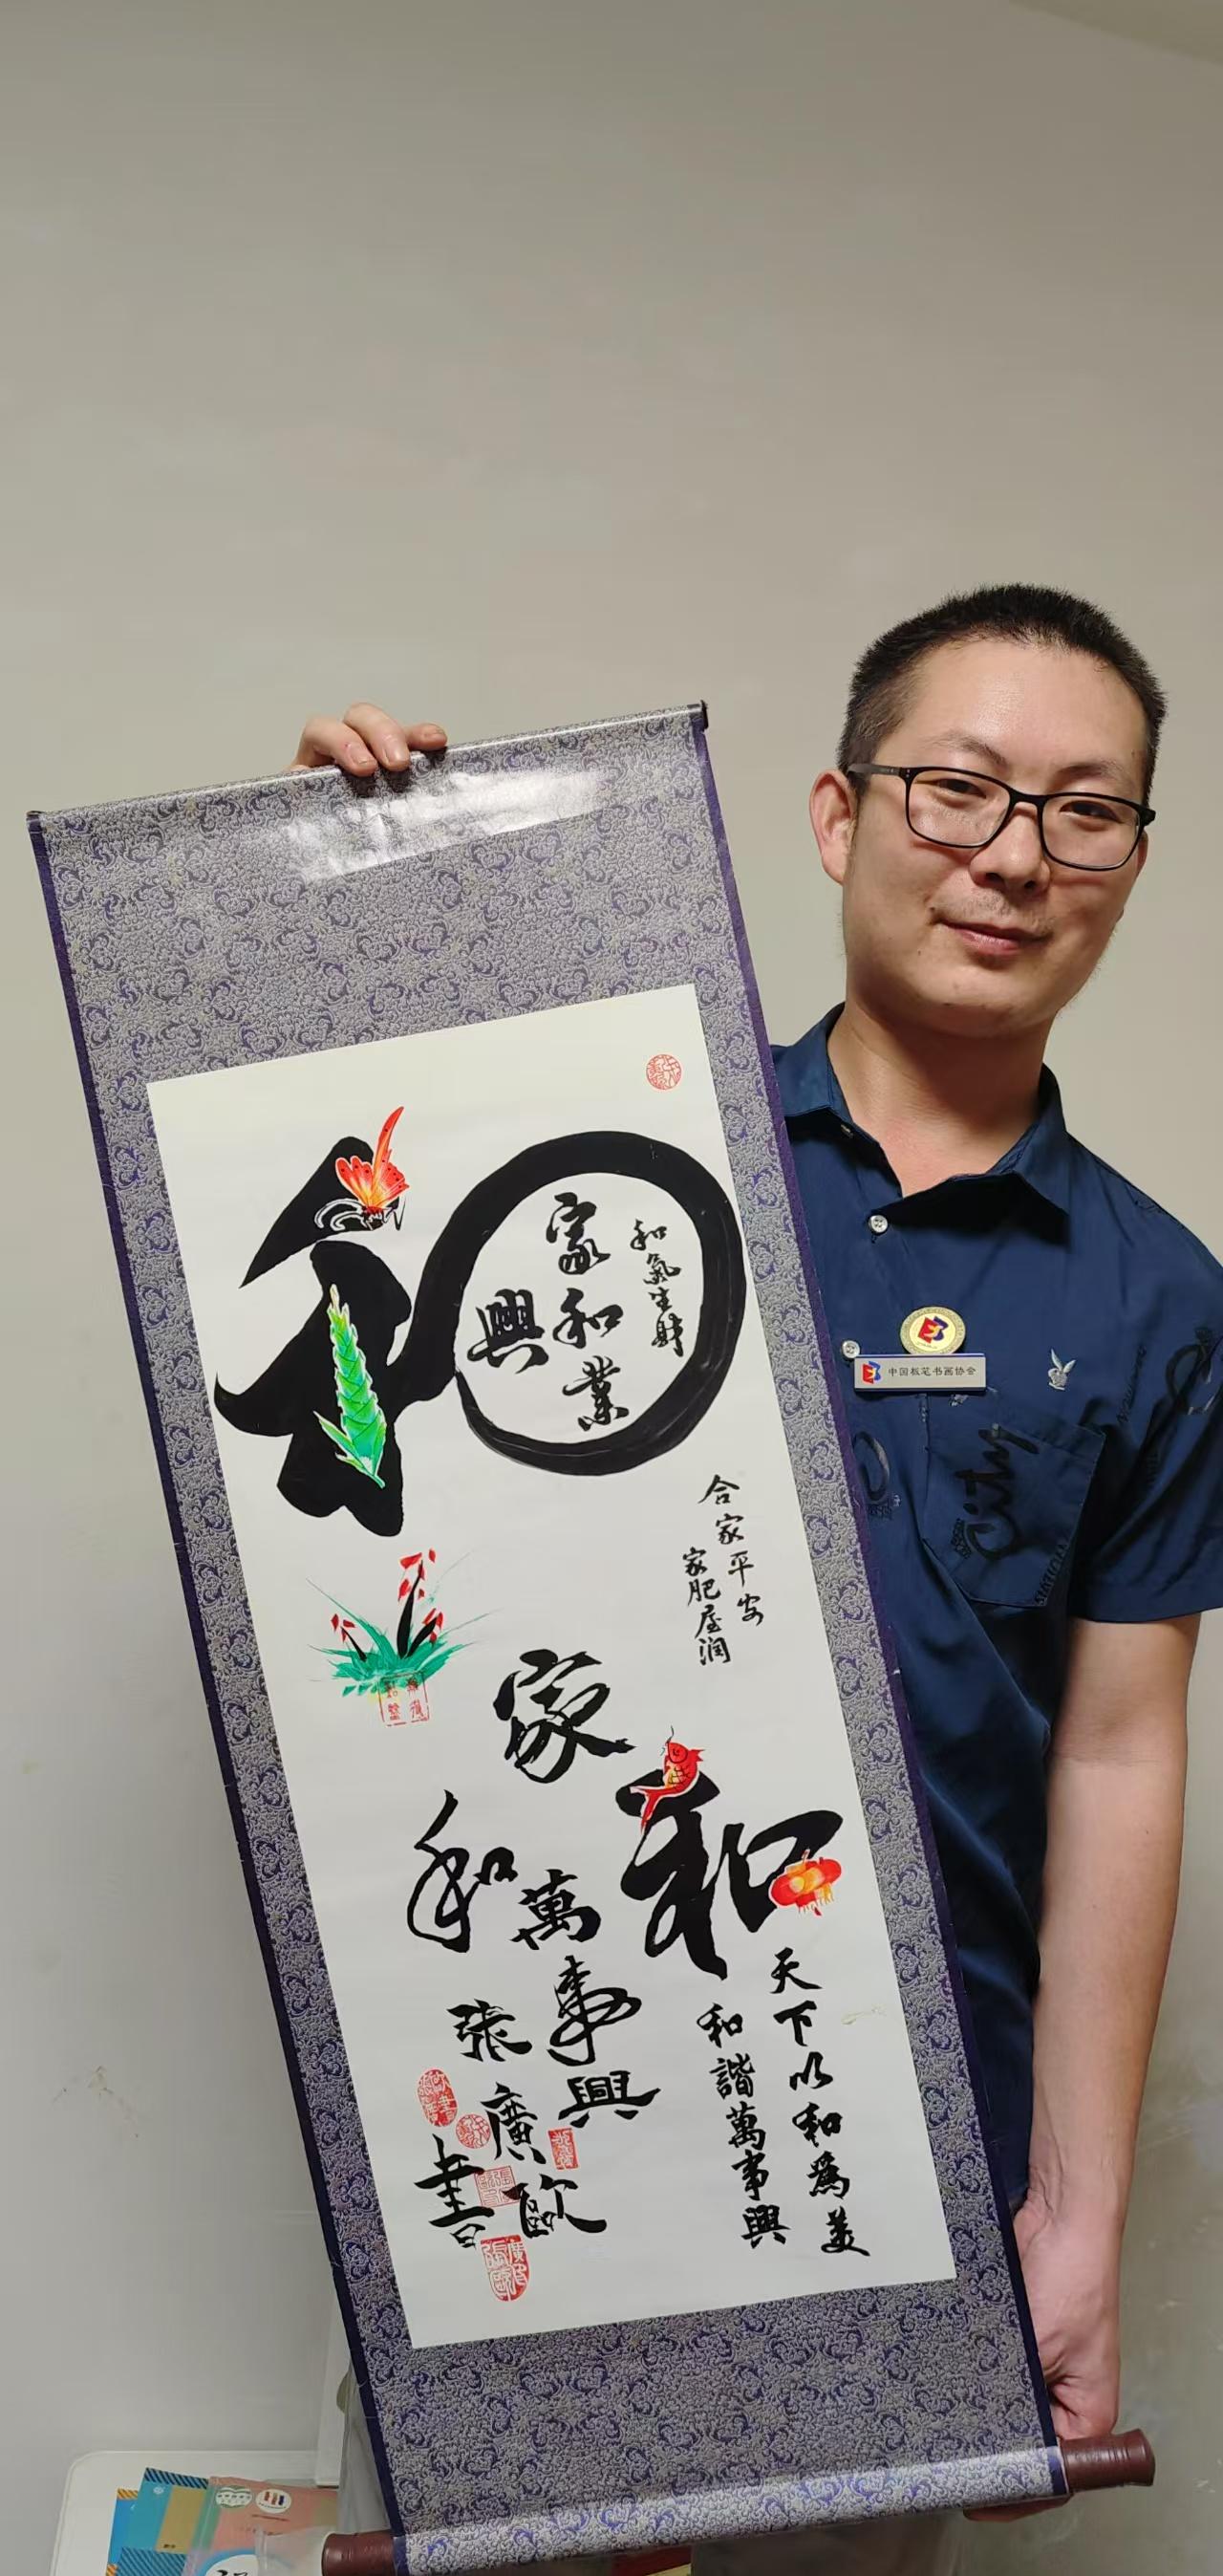 和
和氣生財
家和業
興
合家平安
家肥屋潤
和
天下以和為美
和諧萬事興
家
和
萬事興
張廣歐
書
中国板笔书画协会
City